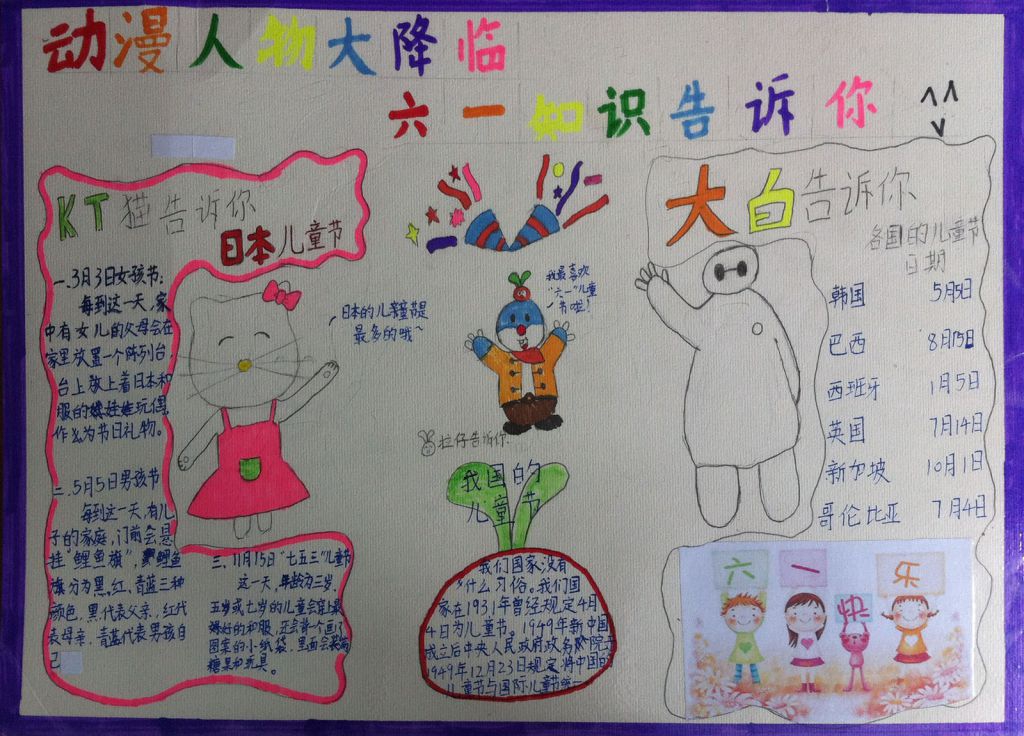 动漫人物大降临
六一知识告诉你
KT猫告诉你
日本儿童节
一.3月3日女孩节:
每到这一天,家
中有女儿的父母会在
家里放置一个陈列台,
台上放上着日本和
服的娃娃玩偶
作么为节日礼物。
二.5月5日男孩节
每到这一天,有儿
子的家庭,门前会悬
挂"鲤鱼旗",鲤鱼
旗分为黑,红,青蓝三种
颜色,黑代表父亲,红代
表母亲,青蓝代表男孩自
己
三.11月15日"七五三"儿童节
这一天,年龄为三岁,
五岁或七岁的儿童会穿上最
好的和服,还会背个画了
图案的小纸袋,里面会装满
糖果和玩具。
日本的儿童节是
最多的哦~
我最喜欢
"六一"儿童
节啦!
拉仔告诉你
我国的
儿童节
我们国家没有
什么习俗。我们国
家在1931年曾经规定4月
4日为儿童节。1949年新中国
成立后中央人民政府政务院于
1949年12月23日规定将中国的
儿童节与国际儿童节统一
大白告诉你
各国的儿童节
日期
韩国 5月5日
巴西 8月15日
西班牙 1月5日
英国 7月14日
新加坡 10月1日
哥伦比亚 7月4日
六一快乐